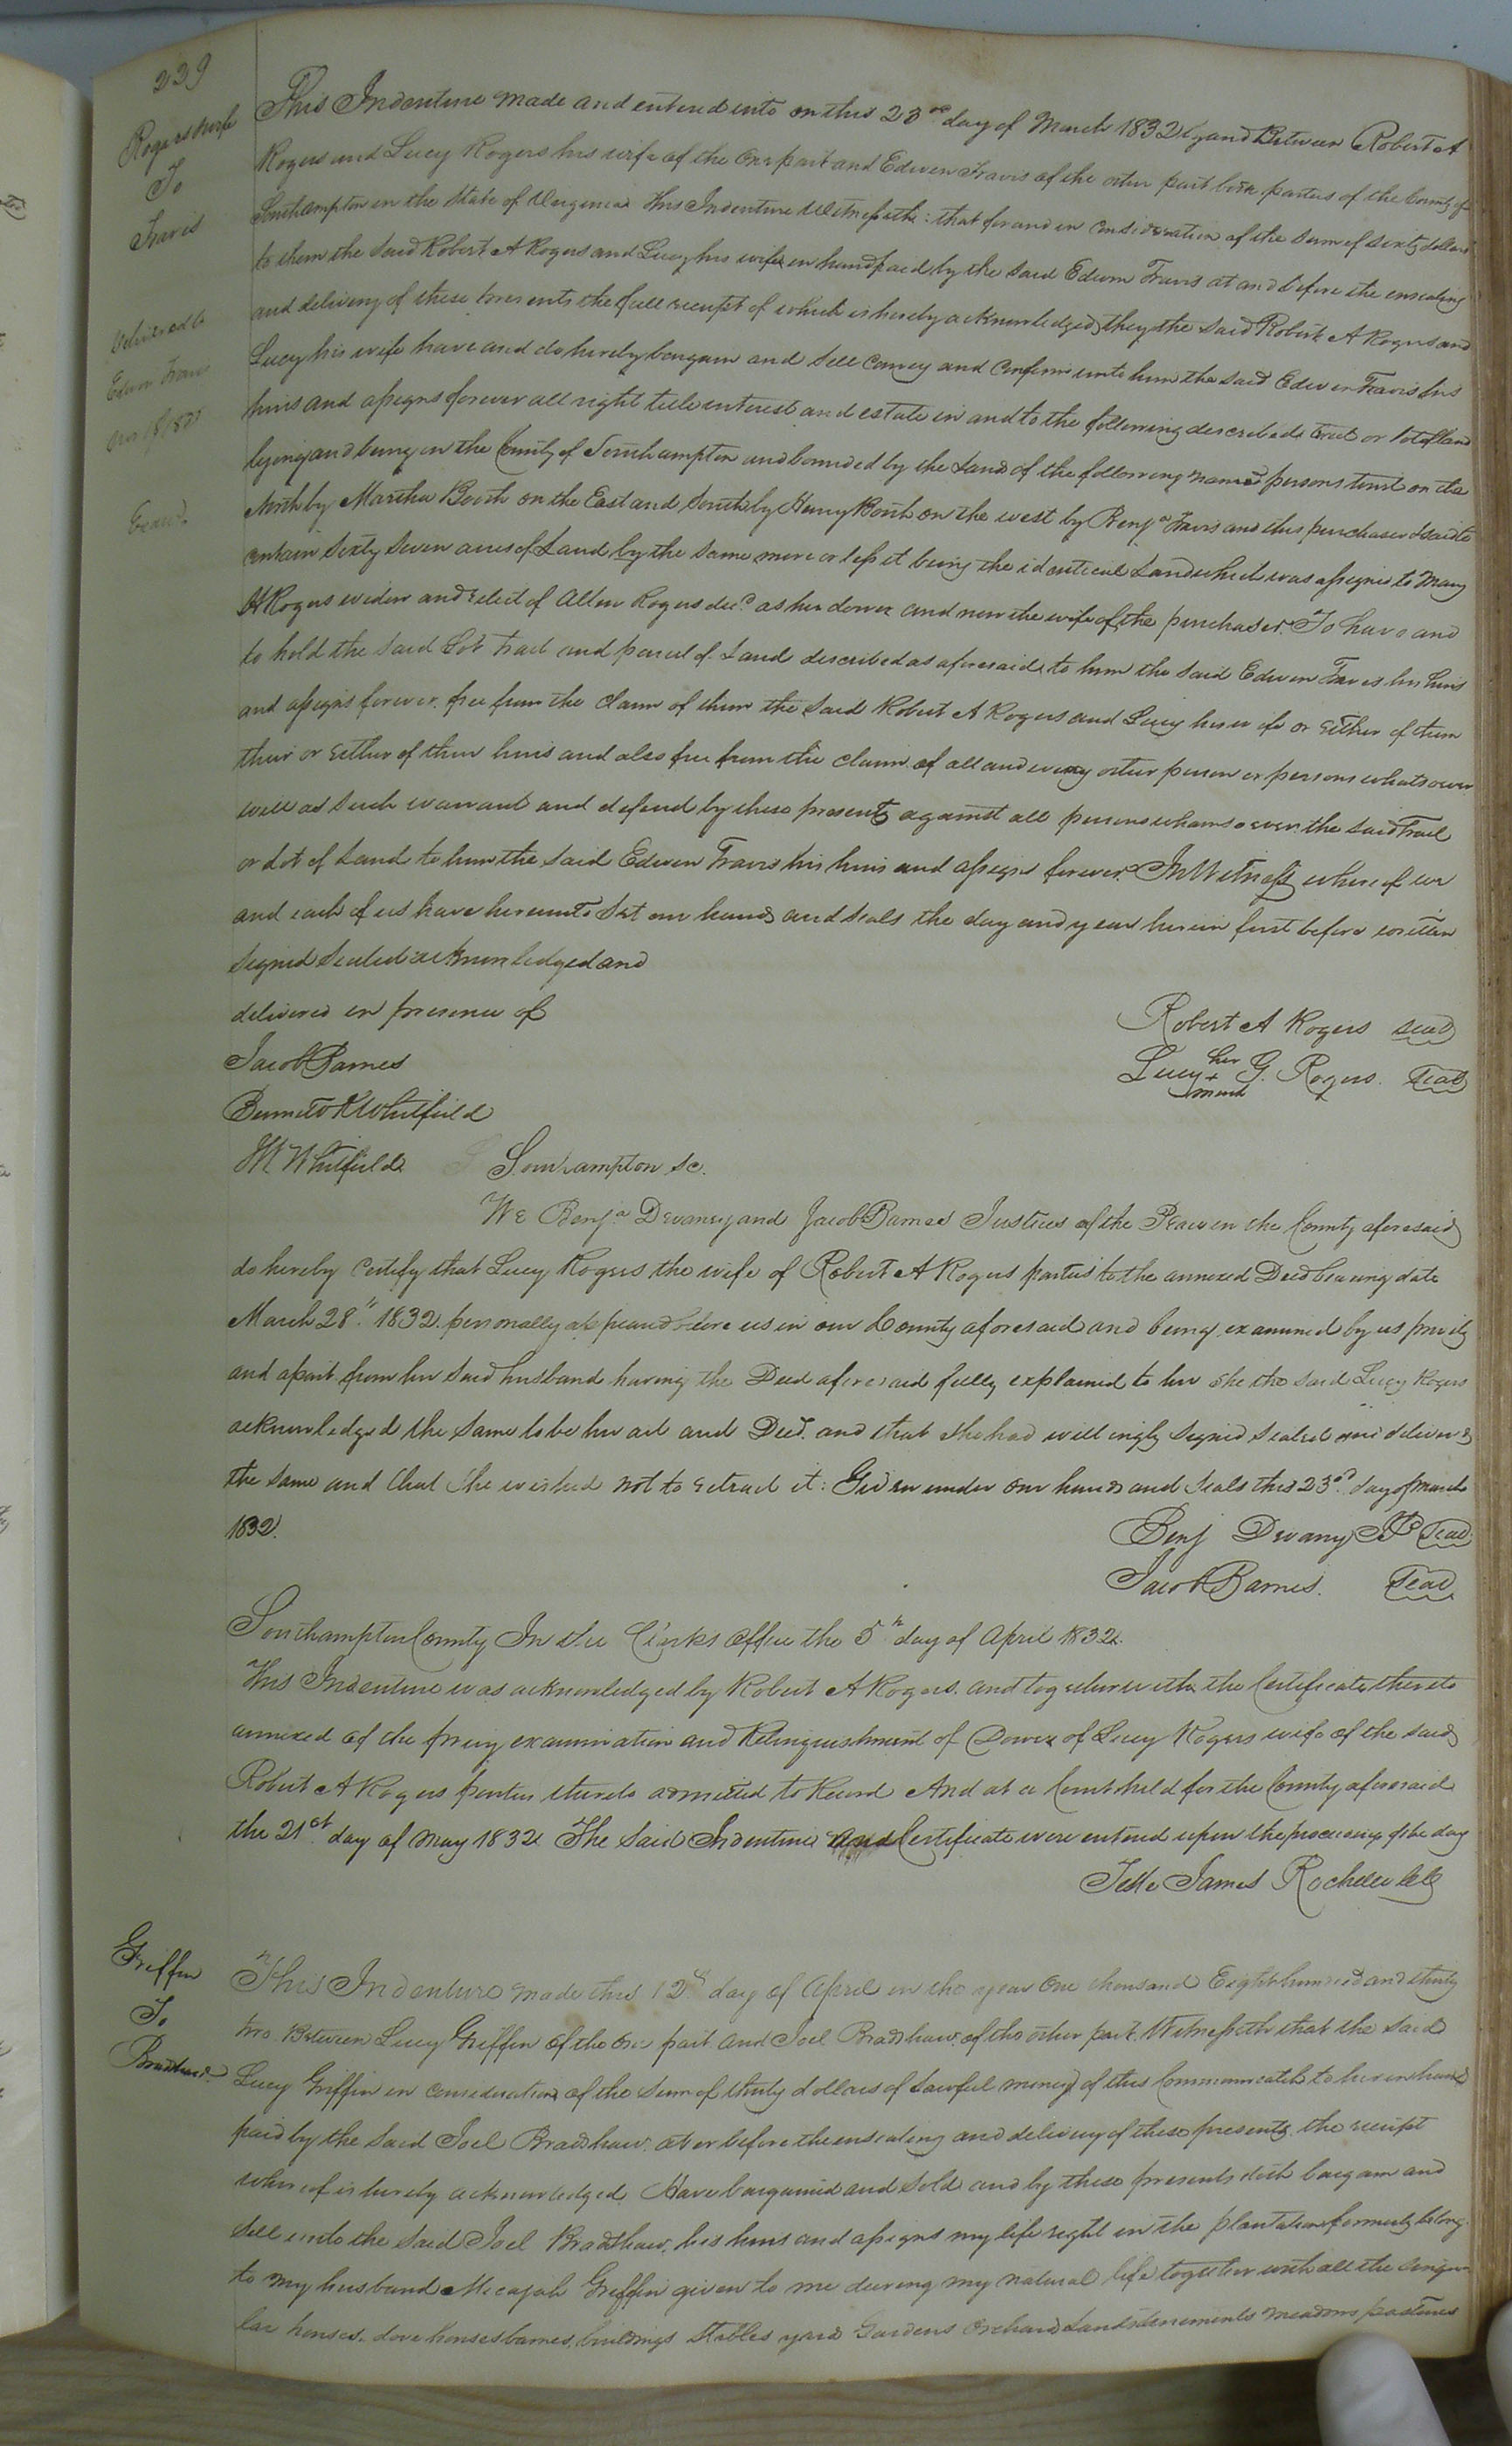 229
Rogers & wife
To
Travis
Delivered to
Edwin Travis
Exam.d
This Indenture made and entered into on this 23rd day of March 1832 by and Between Robert A
Rogers and Lucy Rogers his wife of the One part and Edwin Travis of the other part both parties of the County of
Southampton in the State of Virginia This Indenture Witnesseth: that for and in consideration of the sum of sixty dollars
to them the said Robert A Rogers and Lucy his wife in hand paid by the said Edwin Travis at and before the ensealing
and delivery of these presents the full receipt of which is hereby acknowledged, they the said Robert A Rogers and
Lucy his wife have and do hereby bargain and sell convey and confirm unto him the said Edwin Travis his
heirs and assigns forever all right title interest and estate in and to the following described tract or lot of land
lying and being in the County of Southampton and bounded by the Land of the following named persons to wit on the
North by Martha Booth on the East and South by Henry Booth on the west by Benja Travis and this purchaser & said to
contain Sixty Seven acres of Land by the same more or less it being the identical Land which was assigned to Mary
H Rogers widow and relict of Allen Rogers decd as her dower and now the wife of the purchaser. To have and
to hold the said Lot Tract and parcel of Land described as aforesaid, to him the said Edwin Travis his heirs
and assigns forever. free from the claim of them the said Robert A Rogers and Lucy his wife or Either of them
their or Either of their heirs and also free from the claim of all and every other person or persons whatsoever
will as such warrant and defend by these presents against all persons whomsoever the said Tract
or Lot of Land to him the said Edwin Travis his heirs and assigns forever. In Witness whereof we
and each of us have hereunto Set our hands and seals the day and year herein first before written
Signed Sealed acknowledged and
delivered in presence of
Robert A Rogers seal
Jacob Barnes
Lucy her + mark G. Rogers. Seal
Whitfield
Whitfield
Southampton Sc.
We Benja Devaney and Jacob Barnes Justices of the Peace in the County aforesaid
do hereby Certify that Lucy Rogers the wife of Robert A Rogers parties to the annexed Deed bearing date
March 28th 1832. personally appeared before us in our County aforesaid and being examined by us privily
and apart from her said husband having the Deed aforesaid fully explained to her she the said Lucy Rogers
acknowledged the same to be her act and Deed. and that she had willingly signed sealed and delivered
the same and that She wished not to retract it: Given under our hands and Seals this 23rd day of March
1832.
Benj Devany JP Seal
Jacob Barnes. Seal
Southampton County In the Clerks Office the 5th day of April 1832.
This Indenture was acknowledged by Robert A Rogers. and together with the Certificate thereto
annexed of the privy examination and Relinquishment of Dower of Lucy Rogers wife of the said
Robert A Rogers parties thereto admitted to Record And at a Court held for the County aforesaid
the 21st day of May 1832 The Said Indenture and Certificate were entered upon the proceedings of the day
Teste James Rochelle CC
Griffin
To
Bradshaw
This Indenture made this 12th day of April in the year One thousand Eight hundred and thirty
two. Between Lucy Griffin of the One part and Joel Bradshaw of the other part. Witnesseth that the said
Lucy Griffin in consideration of the sum of thirty dollars of Lawful money of this Commonwealth to her in hand
paid by the said Joel Bradshaw at or before the ensealing and delivery of these presents. the receipt
whereof is hereby acknowledged Have bargained and Sold and by these presents doth bargain and
Sell unto the said Joel Bradshaw his heirs and assigns my life right in the plantation formerly belong
to my husband Micajah Griffin given to me during my natural life together with all the singu
lar houses. dove houses barnes, buildings Stables yard Gardens Orchard Lands tenements meadows pastures